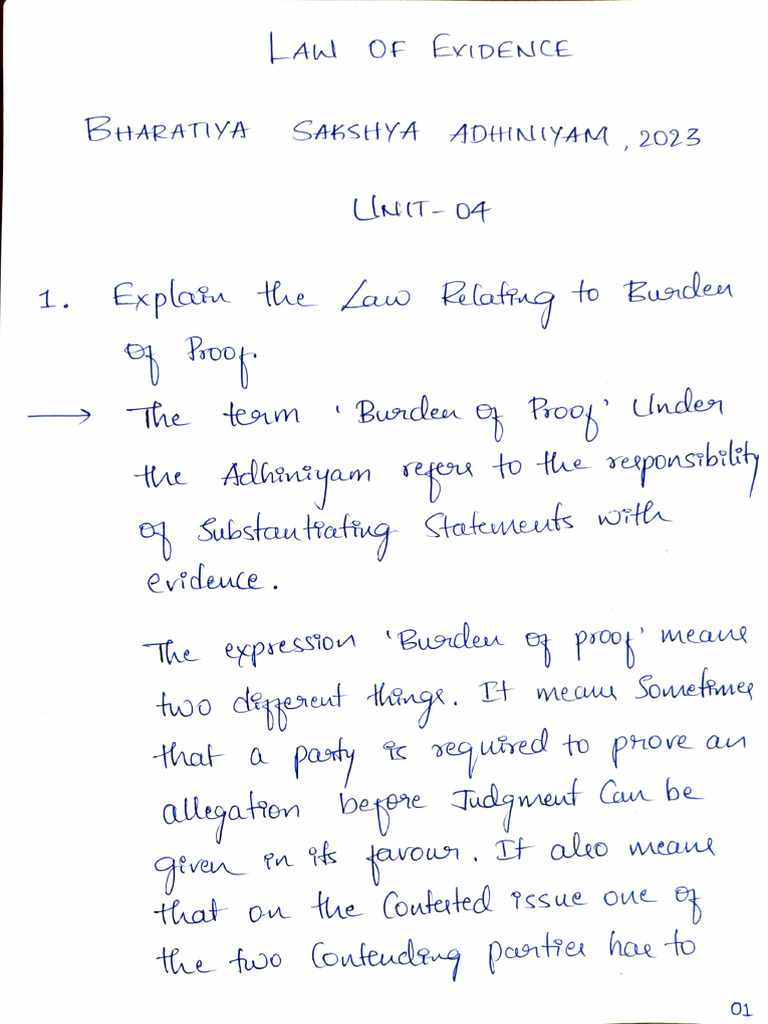 LAW OF EVIDENCE
BHARATIYA SAKSHYA ADHINIYAM, 2023
UNIT-04
1. Explain the Law Relating to Burden
of Proof.
→ The term 'Burden of Proof' Under
the Adhiniyam refers to the responsibility
of Substantiating Statements with
evidence.
The expression 'Burden of proof' means
two different things. It means Sometimes
that a party is required to prove an
allegation before Judgment Can be
given in its favour. It also means
that on the Contested issue one of
the two Contending parties has to
01